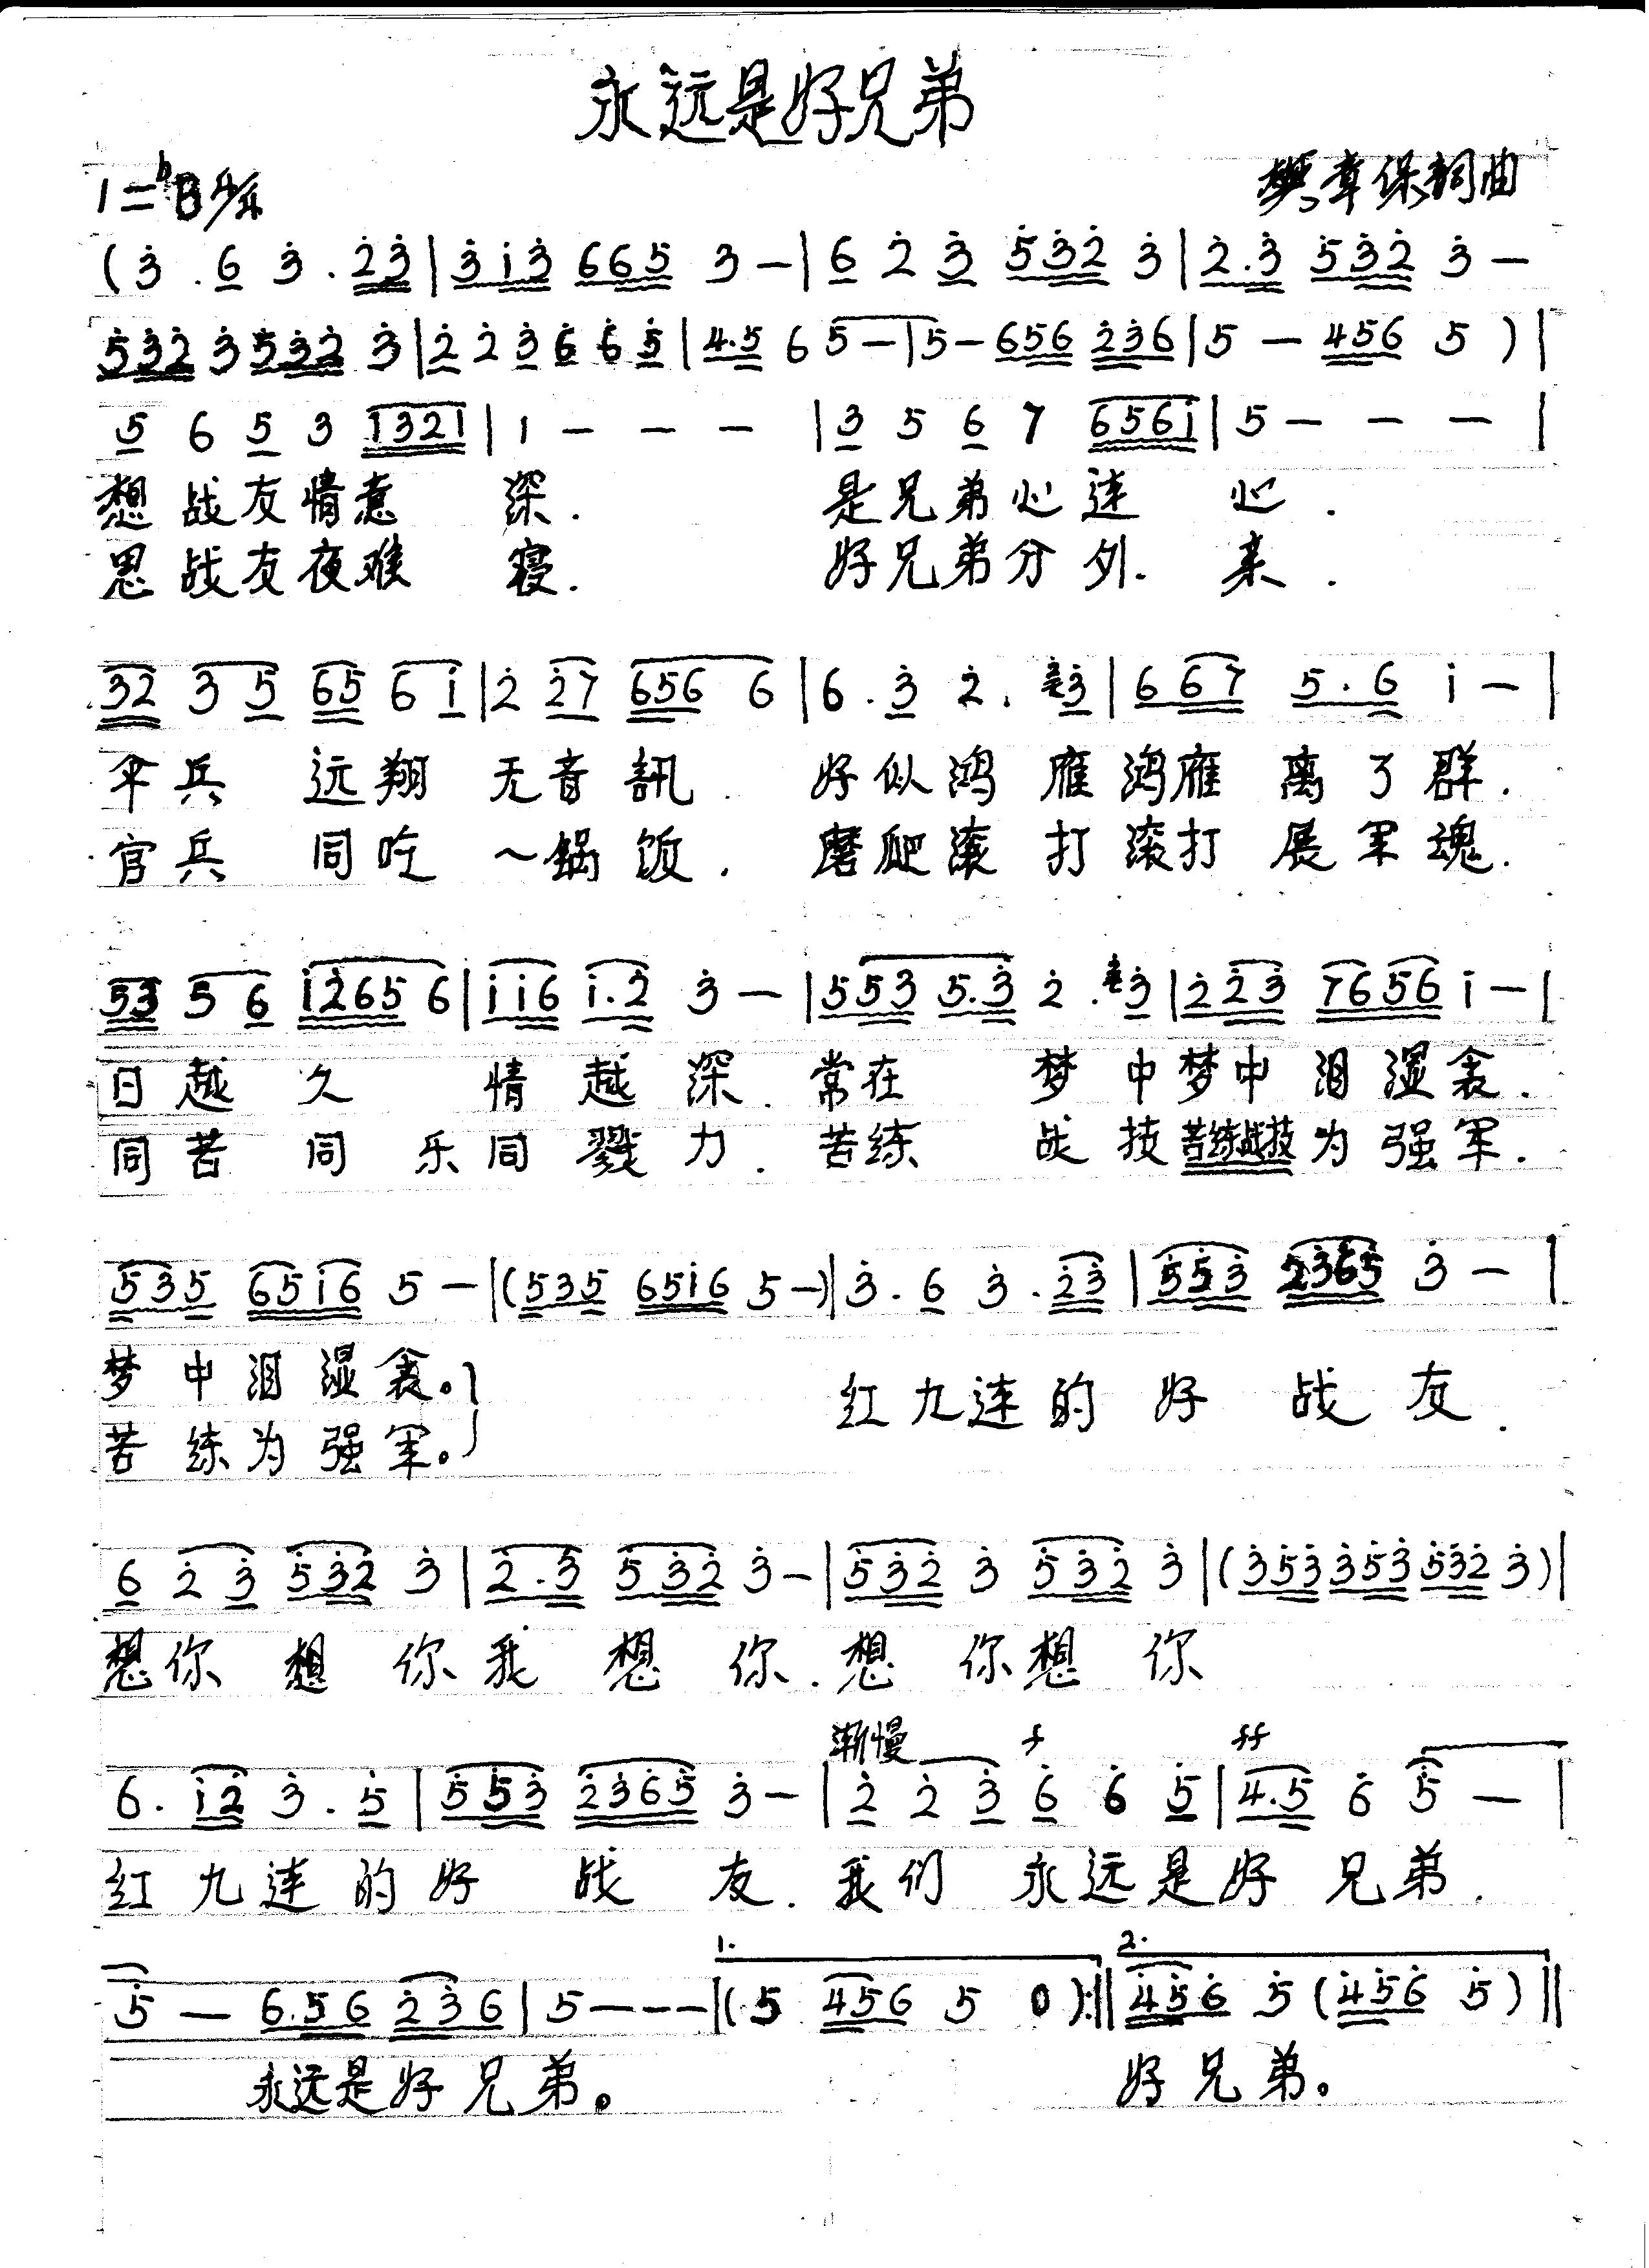 永远是好兄弟
1=ᵇB 4/4 樊章保詞曲
(3̇ . 6 3̇ . 2̇3̇ | 3̇i3̇ 665 3 — | 6 2̇ 3̇ 5̇3̇2̇ 3̇ | 2̇.3̇ 5̇3̇2̇ 3̇ —
5̇3̇2̇ 3̇ 5̇3̇2̇ 3̇ | 2̇ 2̇ 3̇ 6̇ 6̇ 5̇ | 4.5 6 5 — | 5 — 656 2̇3̇6 | 5 — 456 5 ) |
5 6 5 3 1321 | 1 — — — | 3 5 6 7 656i | 5 — — — |
想战友情意 深. 是兄弟心连 心.
思战友夜难 寝. 好兄弟分外 亲.
32 3 5 65 6 i | 2̇ 2̇7 656 6 | 6 . 3̇ 2̇ . 3̇ | 667 5 . 6 i — |
伞兵 远翔 无音訊. 好似鸿 雁鸿雁 离了群.
官兵 同吃 一锅饭. 磨爬滚 打滚打 展军魂.
53 5 6 i2̇65 6 | ii6 i.2̇ 3̇ — | 553 5.3̇ 2̇ . 3̇ | 2̇2̇3̇ 7656 i — |
日越 久 情越深. 常在 梦中梦中 泪湿衾.
同苦 同乐同戮力. 苦练 战技苦练战技为强军.
535 65i6 5 — | (535 65i6 5 —) | 3̇ . 6 3̇ . 2̇3̇ | 5̇5̇3̇ 2̇3̇6̇5̇ 3̇ — |
梦中泪湿衾。} 红九连的好战友.
苦练为强军。
6 2̇ 3̇ 5̇3̇2̇ 3̇ | 2̇ . 3̇ 5̇3̇2̇ 3̇ — | 5̇3̇2̇ 3̇ 5̇3̇2̇ 3̇ | (3̇5̇3̇ 3̇5̇3̇ 5̇3̇2̇ 3̇) |
想你 想你我想你. 想你想你
渐慢 f ff
6 . i2̇ 3̇ . 5̇ | 5̇5̇3̇ 2̇3̇6̇5̇ 3̇ — | 2̇ 2̇ 3̇ 6̇ 6̇ 5̇ | 4̇.5̇ 6̇ 5̇ — |
红九连的好战友. 我们永远是好兄弟.
1. 2.
5̇ — 6.56 2̇3̇6 | 5 — — — | (5 456 5 0 ) :|| 4̇5̇6̇ 5̇ (4̇5̇6̇ 5̇) ||
永远是好兄弟。 好兄弟。